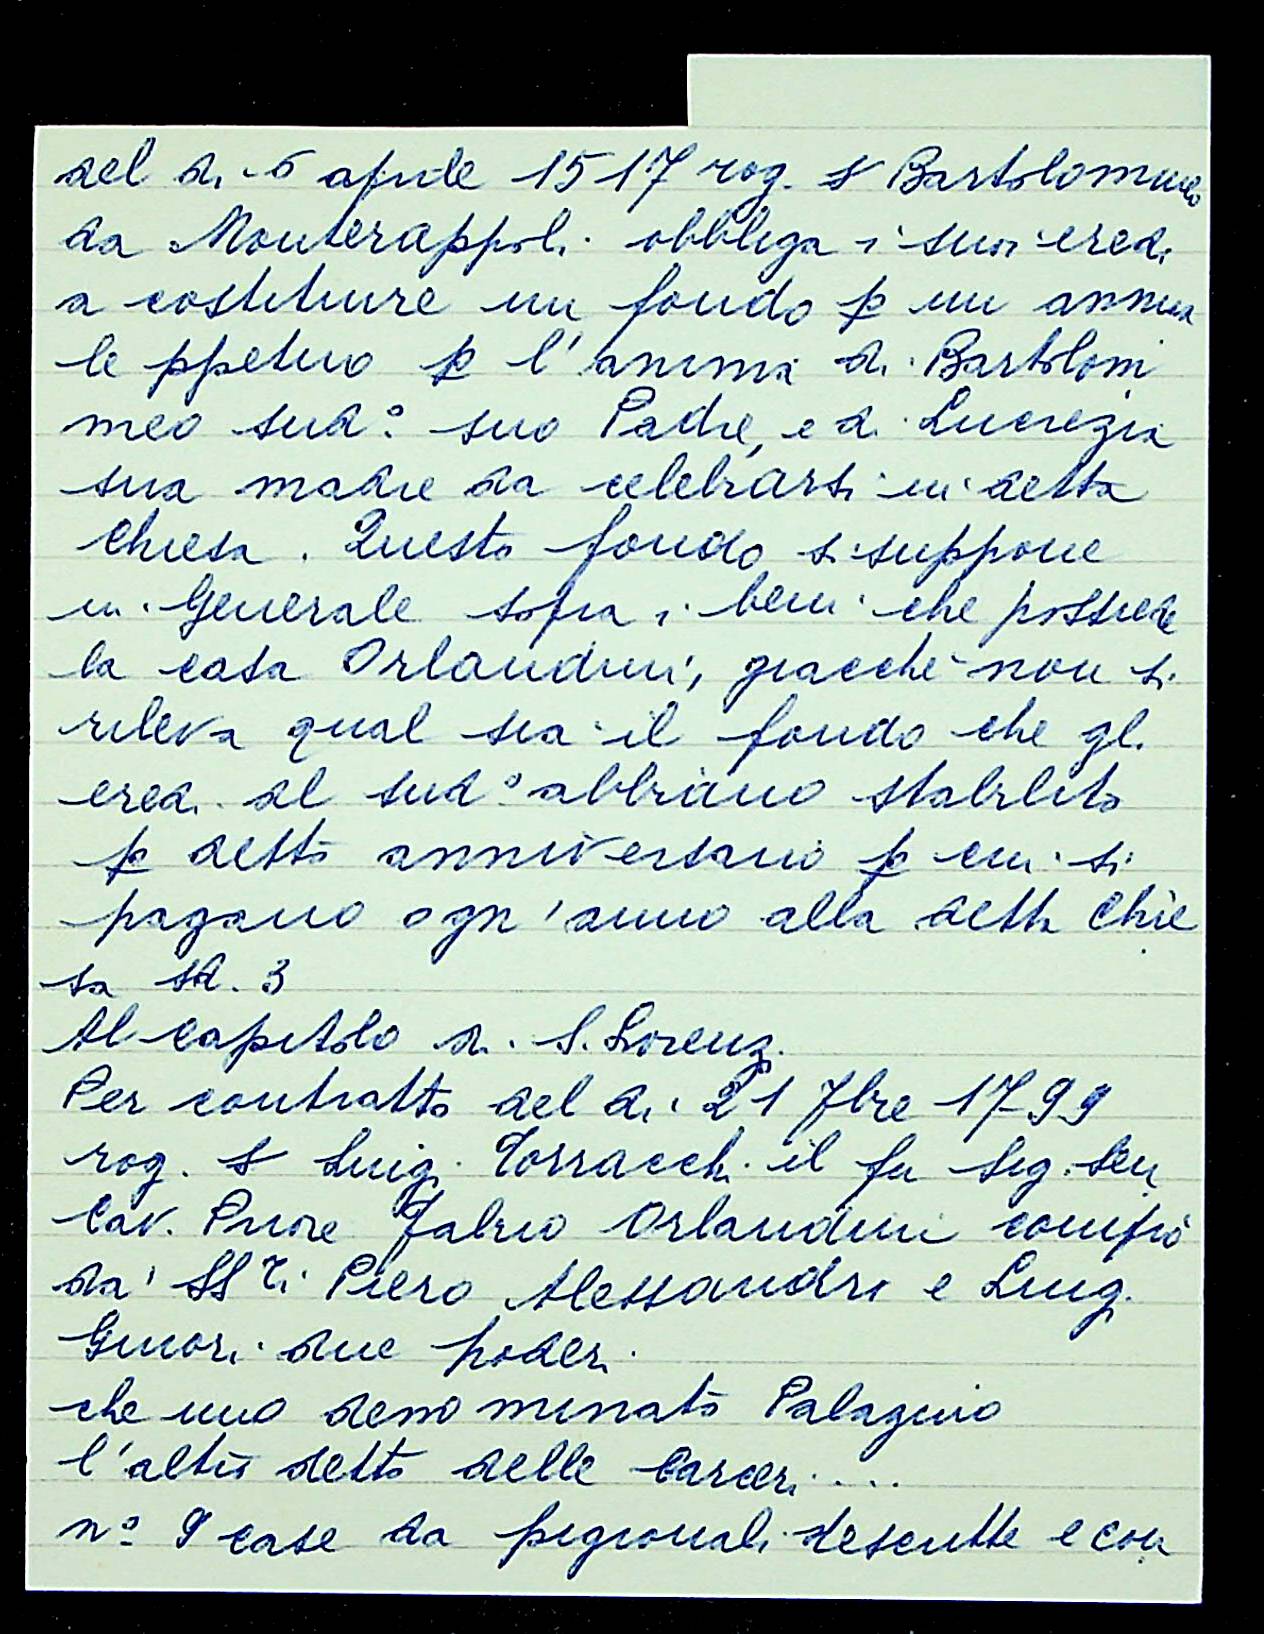 del dì 6 aprile 1517 rog. s Bartolommeo
da Monterappoli obbliga i suoi eredi
a costituire un fondo p un annua
le ppetuo p l'anima di Bartolom
meo sudº suo Padre, e di Lucrezia
sua madre da celebrarsi in detta
Chiesa. Questo fondo si suppone
in Generale sopra i beni che possiede
la casa Orlandini, giacchè non si
rileva qual sia il fondo che gli
eredi del sudº abbiano stabilito
p detto anniversario p cui si
pagano ogn'anno alla detta Chie
sa sd. 3
Al capitolo di S. Lorenz.
Per contratto del dì 21 7bre 1799
rog. s Luigi Torracchi il fu Sig. Sen
Cav. Priore Fabio Orlandini comprò
da' SSri Piero Alessandro e Luigi
Ginori due poderi
che uno denominato Palagino
l'altro detto delle Carceri....
nº 9 case da pigionali descritte e con